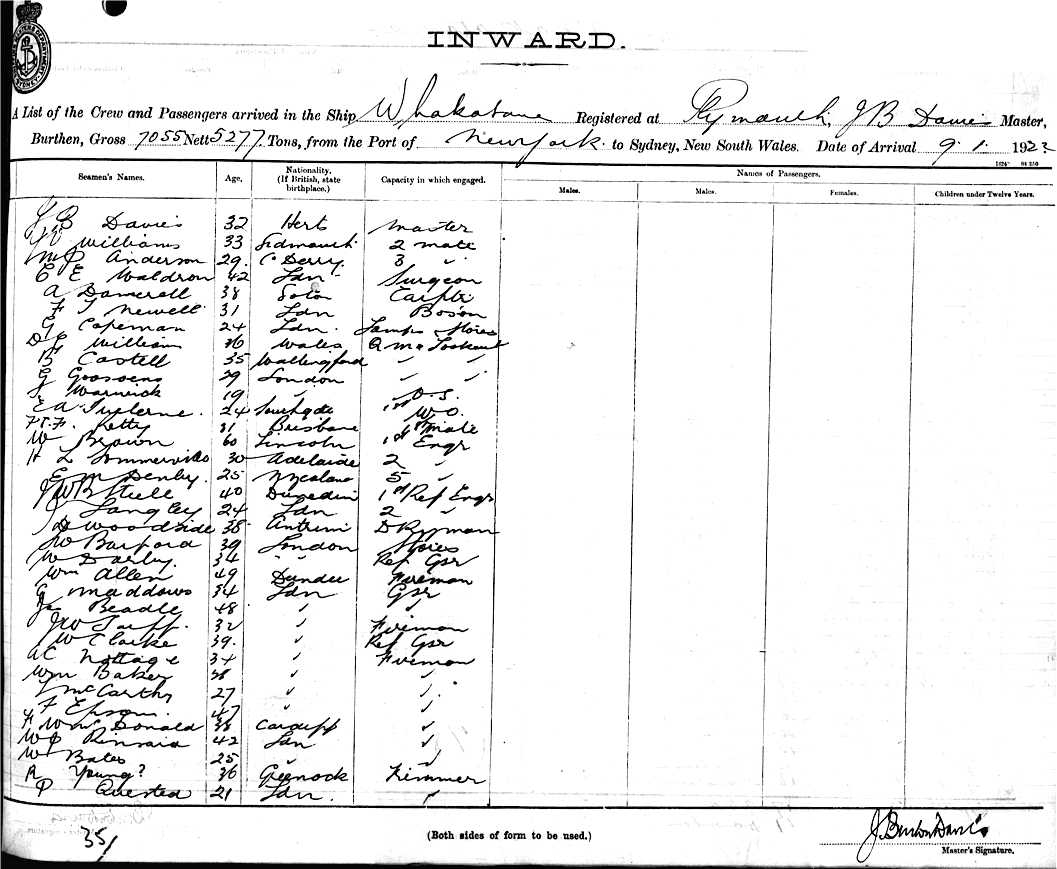 INWARD.
A List of the Crew and Passengers arrived in the Ship Whakatane Registered at Plymouth, J B Davies Master,
Burthen, Gross 7055 Nett 5277 Tons, from the Port of New York to Sydney, New South Wales. Date of Arrival 9. 1. 192
Seamen's Names. Age. Nationality. (If British, state birthplace.) Capacity in which engaged. Names of Passengers.
Males. Males. Females. Children under Twelve Years.
J B Davies 32 Herts Master
Williams 33 Sidmouth 2 mate
Anderson 29. Derry 3 "
C E Waldron 42 Ldn Surgeon
A Damerell 38 Soton Carptr
F J Newell 31 Ldn Boson
G Capeman 24 Ldn. Lamps Stores
Williams Wales Q Ma Lookout
B Castell 35 Wallingford " "
G Goossens 29 London " "
Warwick 19 " O.S.
24 Southgate 1st W.O.
Petty 31 Brisbane mate
W Brown 60 Lincoln 1st Engr
H L Sommerville 30 Adelaide 2 "
E M Denby. 25 5 "
Steele 40 Dunedin 1st Ref Engr
J Langley 24 Ldn 2 "
Woodside 38 Antrim Dkyman
Barford 39 London Stores
W Darby. 34 " Ref Gsr
Wm Allen 49 Dundee Fireman
G Maddows 34 Ldn Gsr
Beadle 48 " "
32 " Fireman
W Clarke 39. " Ref Gsr
A C Nottage 34 " Fireman
Wm Baker " "
McCarthy 27 " "
F 47 " "
McDonald 38 Cardiff "
42 Ldn "
W Bates 25 " "
R Young? 36 Greenock Trimmer
P Quested 21 Ldn. "
35/
(Both sides of form to be used.)
Master's Signature.